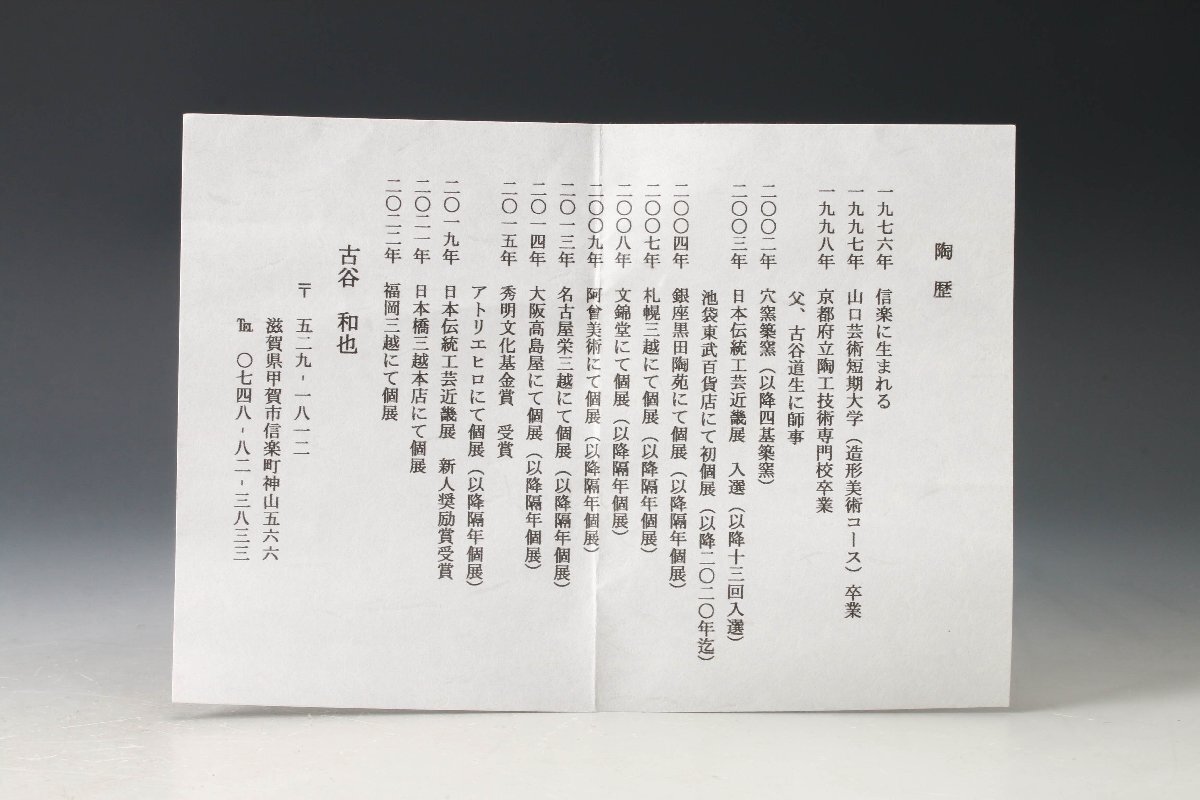 陶歴
一九七六年 信楽に生まれる
一九九七年 山口芸術短期大学（造形美術コース）卒業
一九九八年 京都府立陶工技術専門校卒業
父、古谷道生に師事
二〇〇二年 穴窯築窯（以降四基築窯）
二〇〇三年 日本伝統工芸近畿展 入選（以降十三回入選）
池袋東武百貨店にて初個展（以降二〇二〇年迄）
二〇〇四年 銀座黒田陶苑にて個展（以降隔年個展）
二〇〇七年 札幌三越にて個展（以降隔年個展）
二〇〇八年 文錦堂にて個展（以降隔年個展）
二〇〇九年 阿曾美術にて個展（以降隔年個展）
二〇一三年 名古屋栄三越にて個展（以降隔年個展）
二〇一四年 大阪高島屋にて個展（以降隔年個展）
二〇一五年 秀明文化基金賞 受賞
アトリエヒロにて個展（以降隔年個展）
二〇一九年 日本伝統工芸近畿展 新人奨励賞受賞
二〇二一年 日本橋三越本店にて個展
二〇二二年 福岡三越にて個展
古谷 和也
〒五二九-一八一二
滋賀県甲賀市信楽町神山五六六
℡ 〇七四八-八二-三八三三